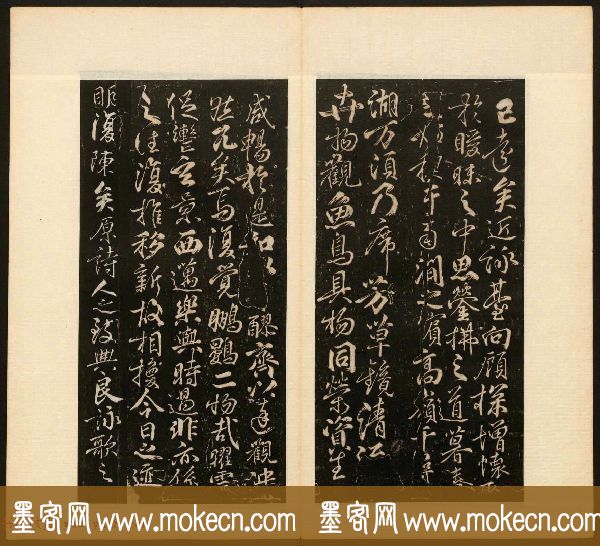 已遠矣近詠臺向顧探增懷
於曖昧之中思縈拂之道暮春
澗之濱高嶺千尋
湖万頃乃席芳草鏡清流
卉物觀魚鳥具物同榮資生
咸暢於是和以醪齊以達觀泱
然兀矣焉復覺鵬鷃二物哉曜靈
促轡玄景西邁樂與時過悲亦係
之往復推移新故相換今日之迹
明復陳矣原詩人之致興良詠歌之
墨客网 www.mokecn.com
墨客网 www.mokecn.com